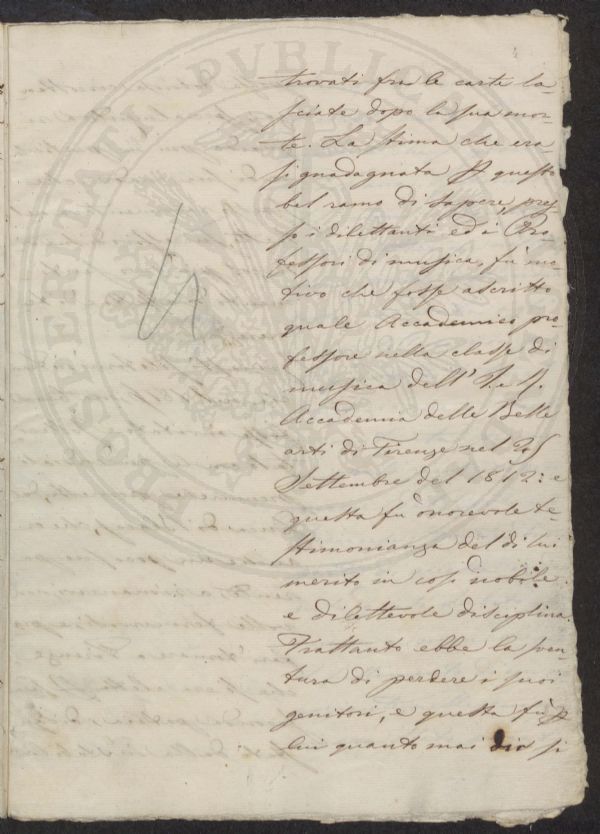 trovati fra le carte la-
sciate dopo la sua mor-
te. La stima che era
si guadagnata p questo
bel ramo di sapere, pres-
so i dilettanti ed i Pro-
fessori di musica, fù mo-
tivo che fosse ascritto
quale Accademico pro-
fessore nella classe di
musica dell' I. e R.
Accademia delle Belle
arti di Firenze nel 25
Settembre del 1812: e
questa fù onorevole te-
stimonianza del di lui
merito in così nobile
e dilettevole disciplina.
Trattanto ebbe la sven-
tura di perdere i suoi
genitori, e questa fù p
lui quanto mai dir si
POSTERITATI PVBLIC